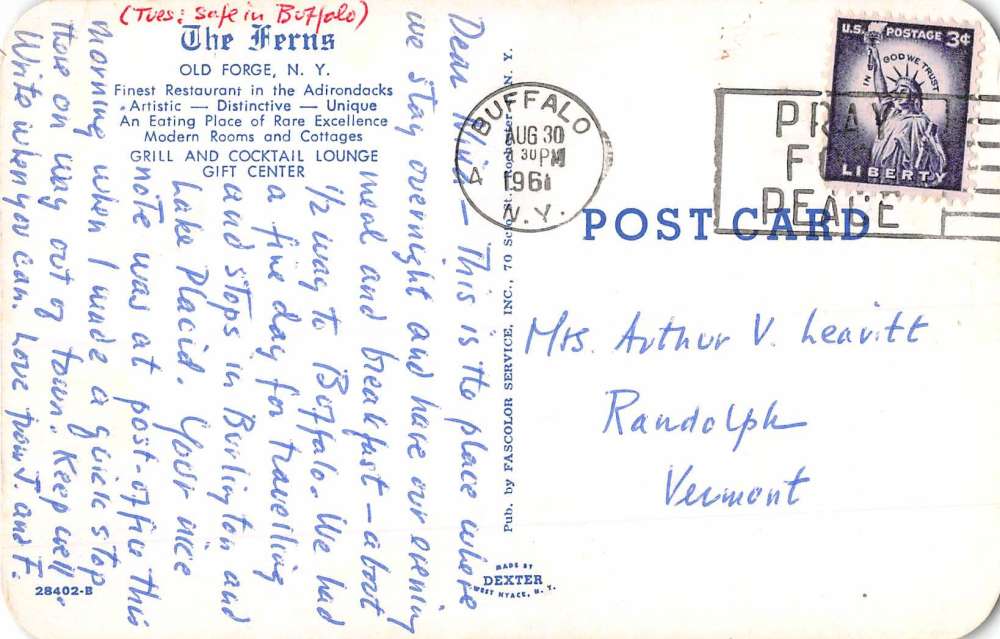 (Tues: safe in Buffalo)
The Ferns
OLD FORGE, N. Y.
Finest Restaurant in the Adirondacks
Artistic — Distinctive — Unique
An Eating Place of Rare Excellence
Modern Rooms and Cottages
GRILL AND COCKTAIL LOUNGE
GIFT CENTER
Dear — This is the place where
we stay overnight and have our evening
meal and breakfast — about
1/2 way to Buffalo. We had
a fine day for travelling
and stops in Burlington and
Lake Placid. Your nice
note was at post-office this
morning when I made a quick stop
there on way out of town. Keep well.
Write when you can. Love from J. and F.
28402-B
Pub. by FASCOLOR SERVICE, INC., 70 Scio St., Rochester, N. Y.
MADE BY
DEXTER
WEST NYACK, N. Y.
BUFFALO
AUG 30
30 PM
1961
N.Y.
4
PRAY
FOR
PEACE
U.S. POSTAGE 3¢
IN GOD WE TRUST
LIBERTY
POST CARD
Mrs. Arthur V. Leavitt
Randolph
Vermont